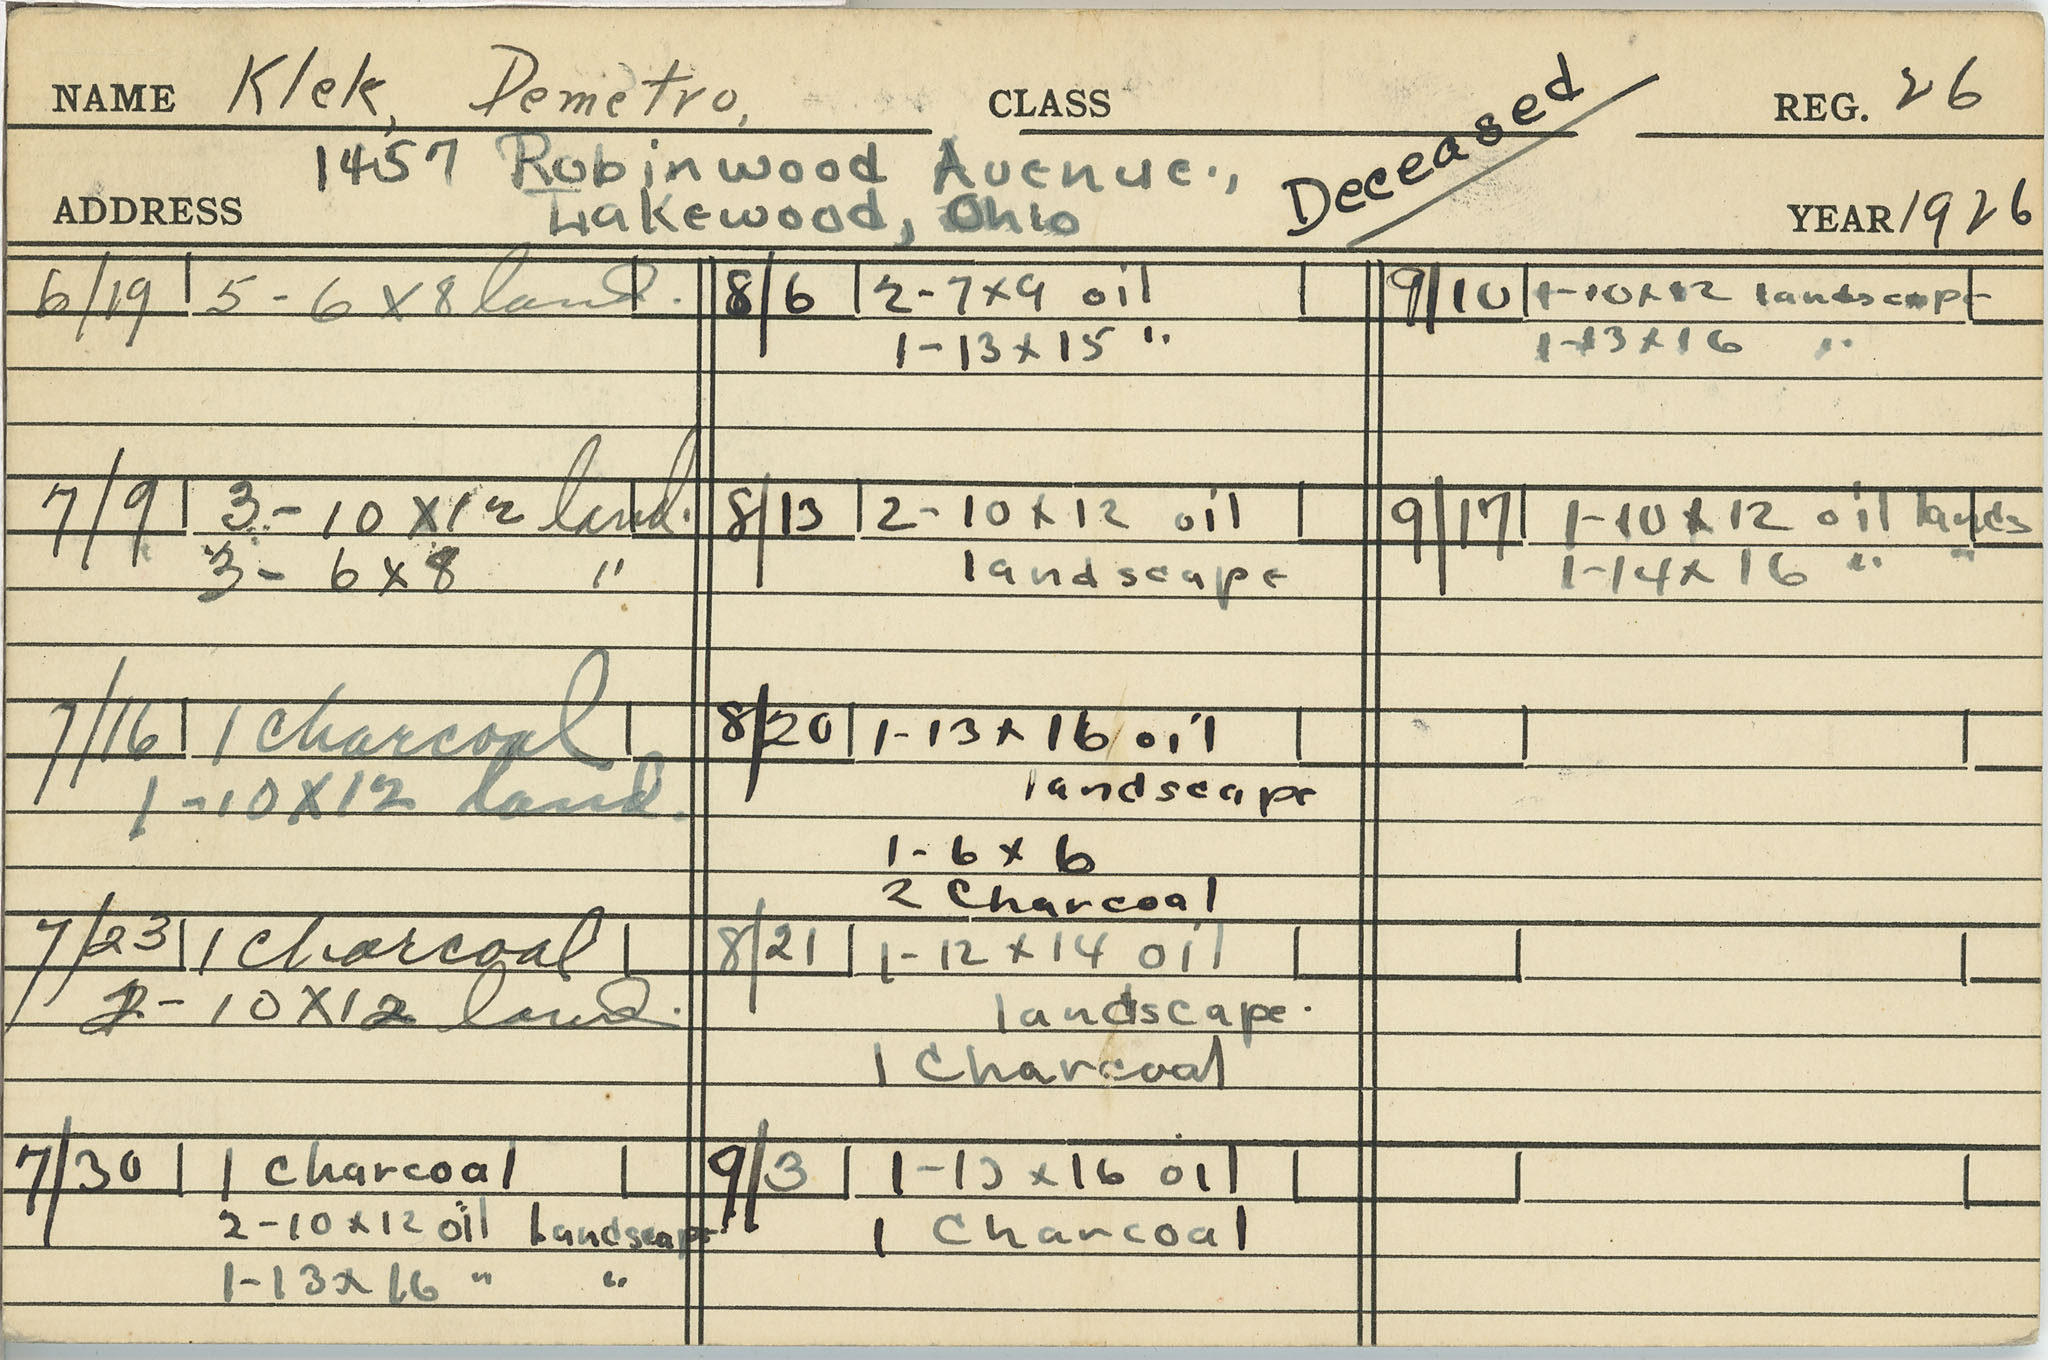 NAME Klek, Demetro, CLASS Deceased REG. 26
1457 Robinwood Avenue.,
ADDRESS Lakewood, Ohio YEAR 1926
6/19 5-6X8 land.
7/9 3-10X12 land.
3-6X8 "
7/16 1 Charcoal
1-10X12 land.
7/23 1 Charcoal
2-10X12 land.
7/30 1 Charcoal
2-10x12 oil Landscape
1-13x16 " "
8/6 2-7x9 oil
1-13x15 "
8/13 2-10x12 oil
landscape
8/20 1-13x16 oil
landscape
1-6x6
2 Charcoal
8/21 1-12x14 oil
landscape.
1 Charcoal
9/3 1-13x16 oil
1 Charcoal
9/10 1-10x12 landscape
1-13x16 "
9/17 1-10x12 oil lands
1-14x16 " "